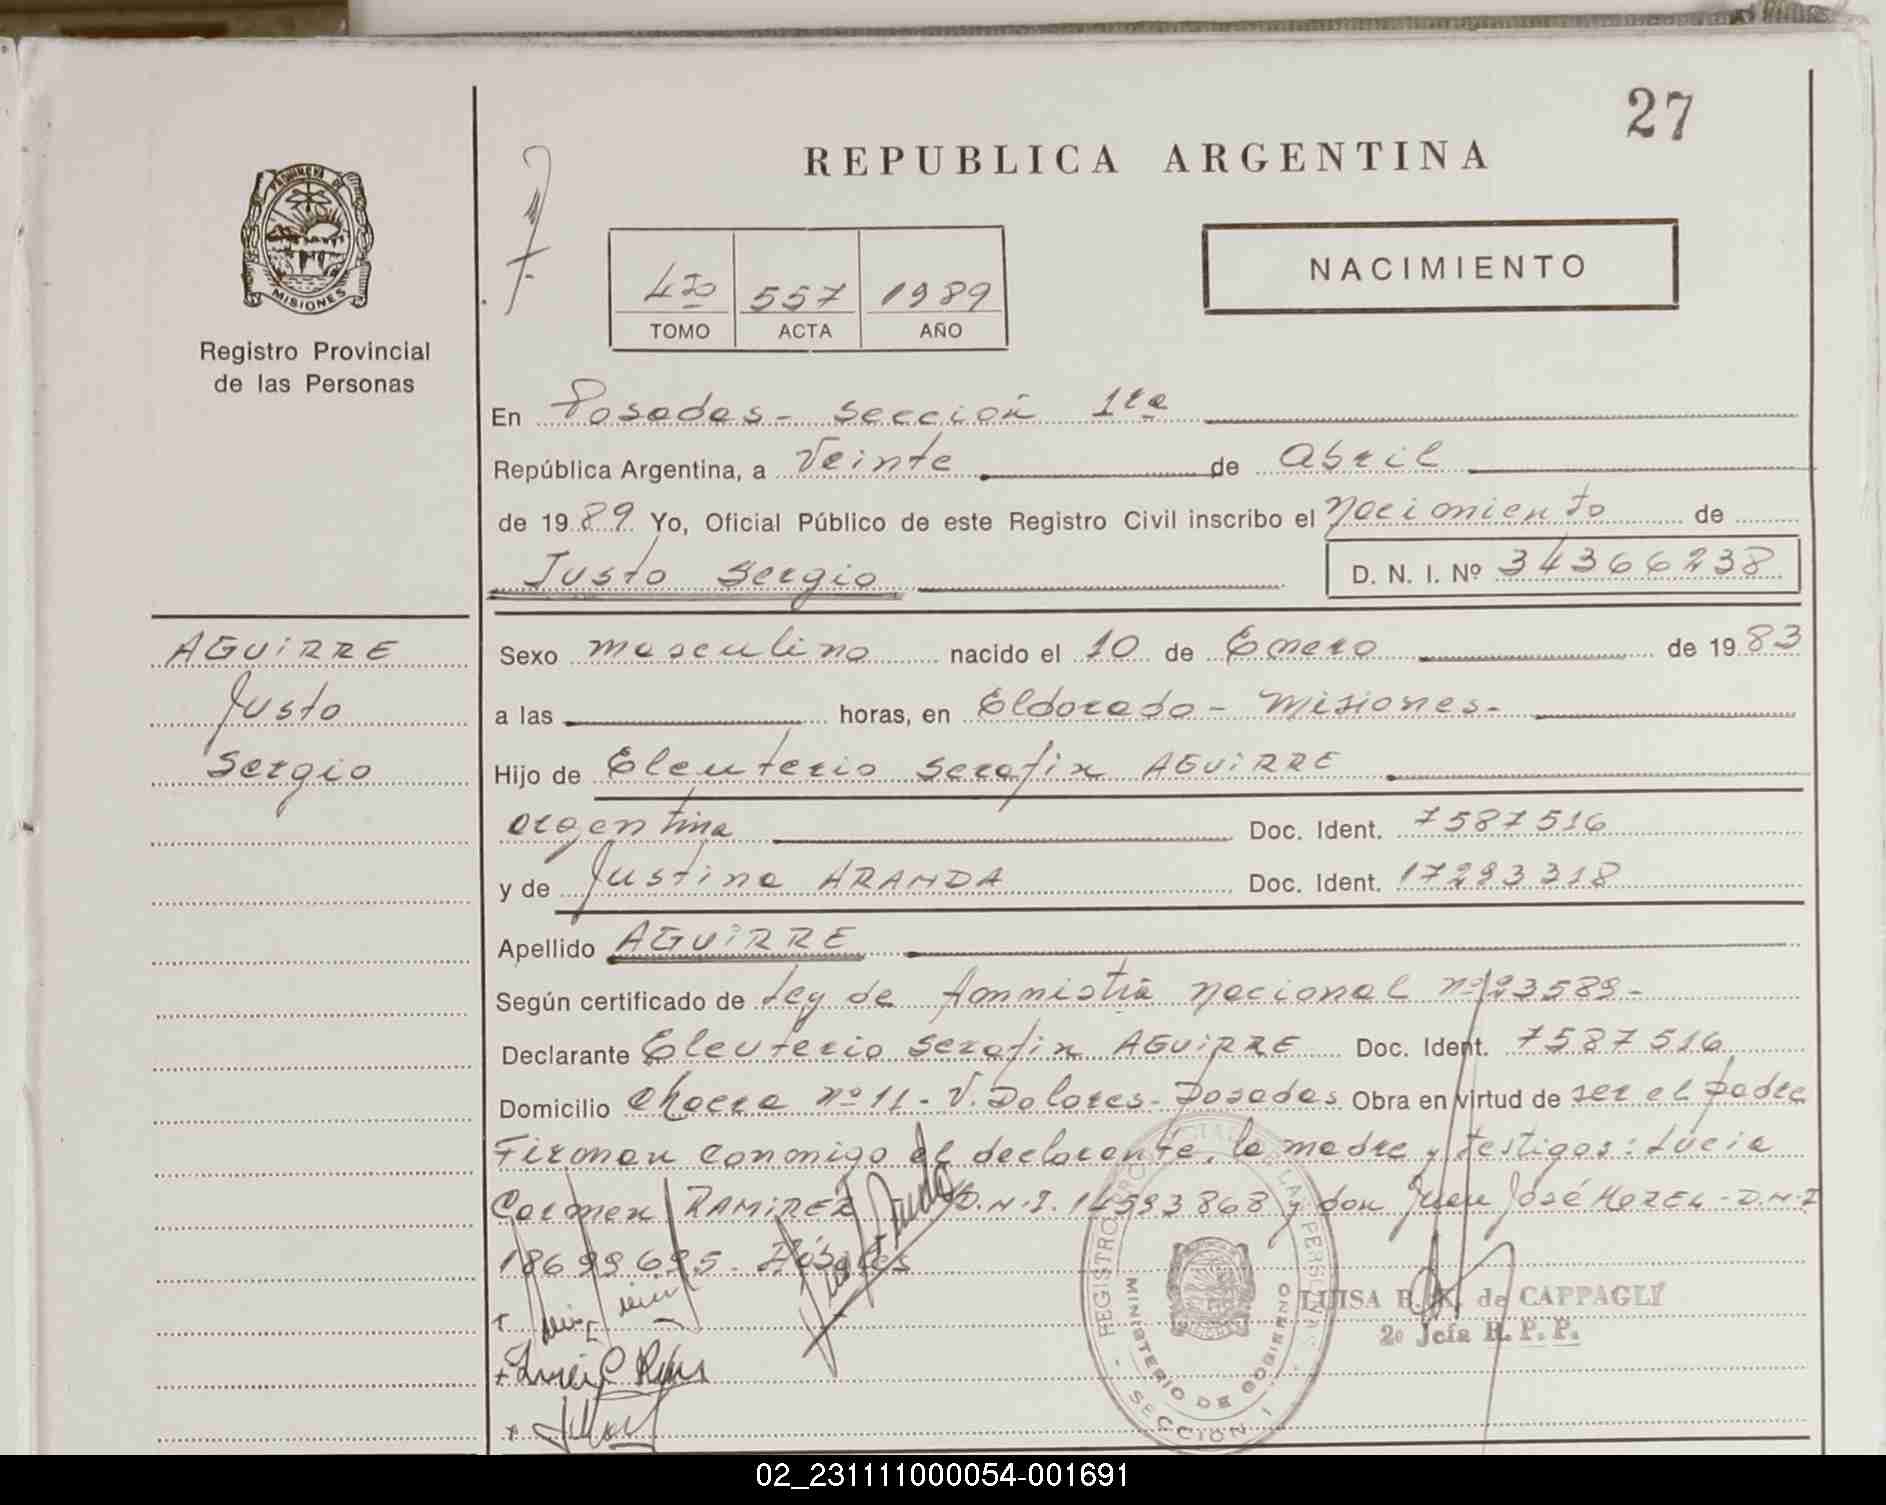 27
REPUBLICA ARGENTINA
PROVINCIA DE
MISIONES
NACIMIENTO
4to 557 1989
TOMO ACTA AÑO
Registro Provincial
de las Personas
En Posadas - Sección 1ra
República Argentina, a Veinte de Abril
de 1989 Yo, Oficial Público de este Registro Civil inscribo el Nacimiento de
Justo Sergio D. N. I. Nº 34366238
AGUIRRE
Justo
Sergio
Sexo masculino nacido el 10 de Enero de 1983
a las horas, en Eldorado - Misiones-
Hijo de Eleuterio Serafin AGUIRRE
argentina Doc. Ident. 7587516
y de Justina ARANDA Doc. Ident. 17293318
Apellido AGUIRRE
Según certificado de Ley de Amnistia Nacional nº 23589-
Declarante Eleuterio Serafin AGUIRRE Doc. Ident. 7587516
Domicilio Chacra nº 11 - V. Dolores - Posadas Obra en virtud de ser el padre
Firman conmigo el declarante, la madre y testigos: Lucia
Carmen RAMIREZ D.N.I. 14593868 y don Juan José MOREL - D.N.I
18699695.
LUISA B. K. de CAPPAGLI
2º Jefa R. P. P.
REGISTRO DE LAS PERSONAS
MINISTERIO DE GOBIERNO
- SECCION 1 -
02_231111000054-001691